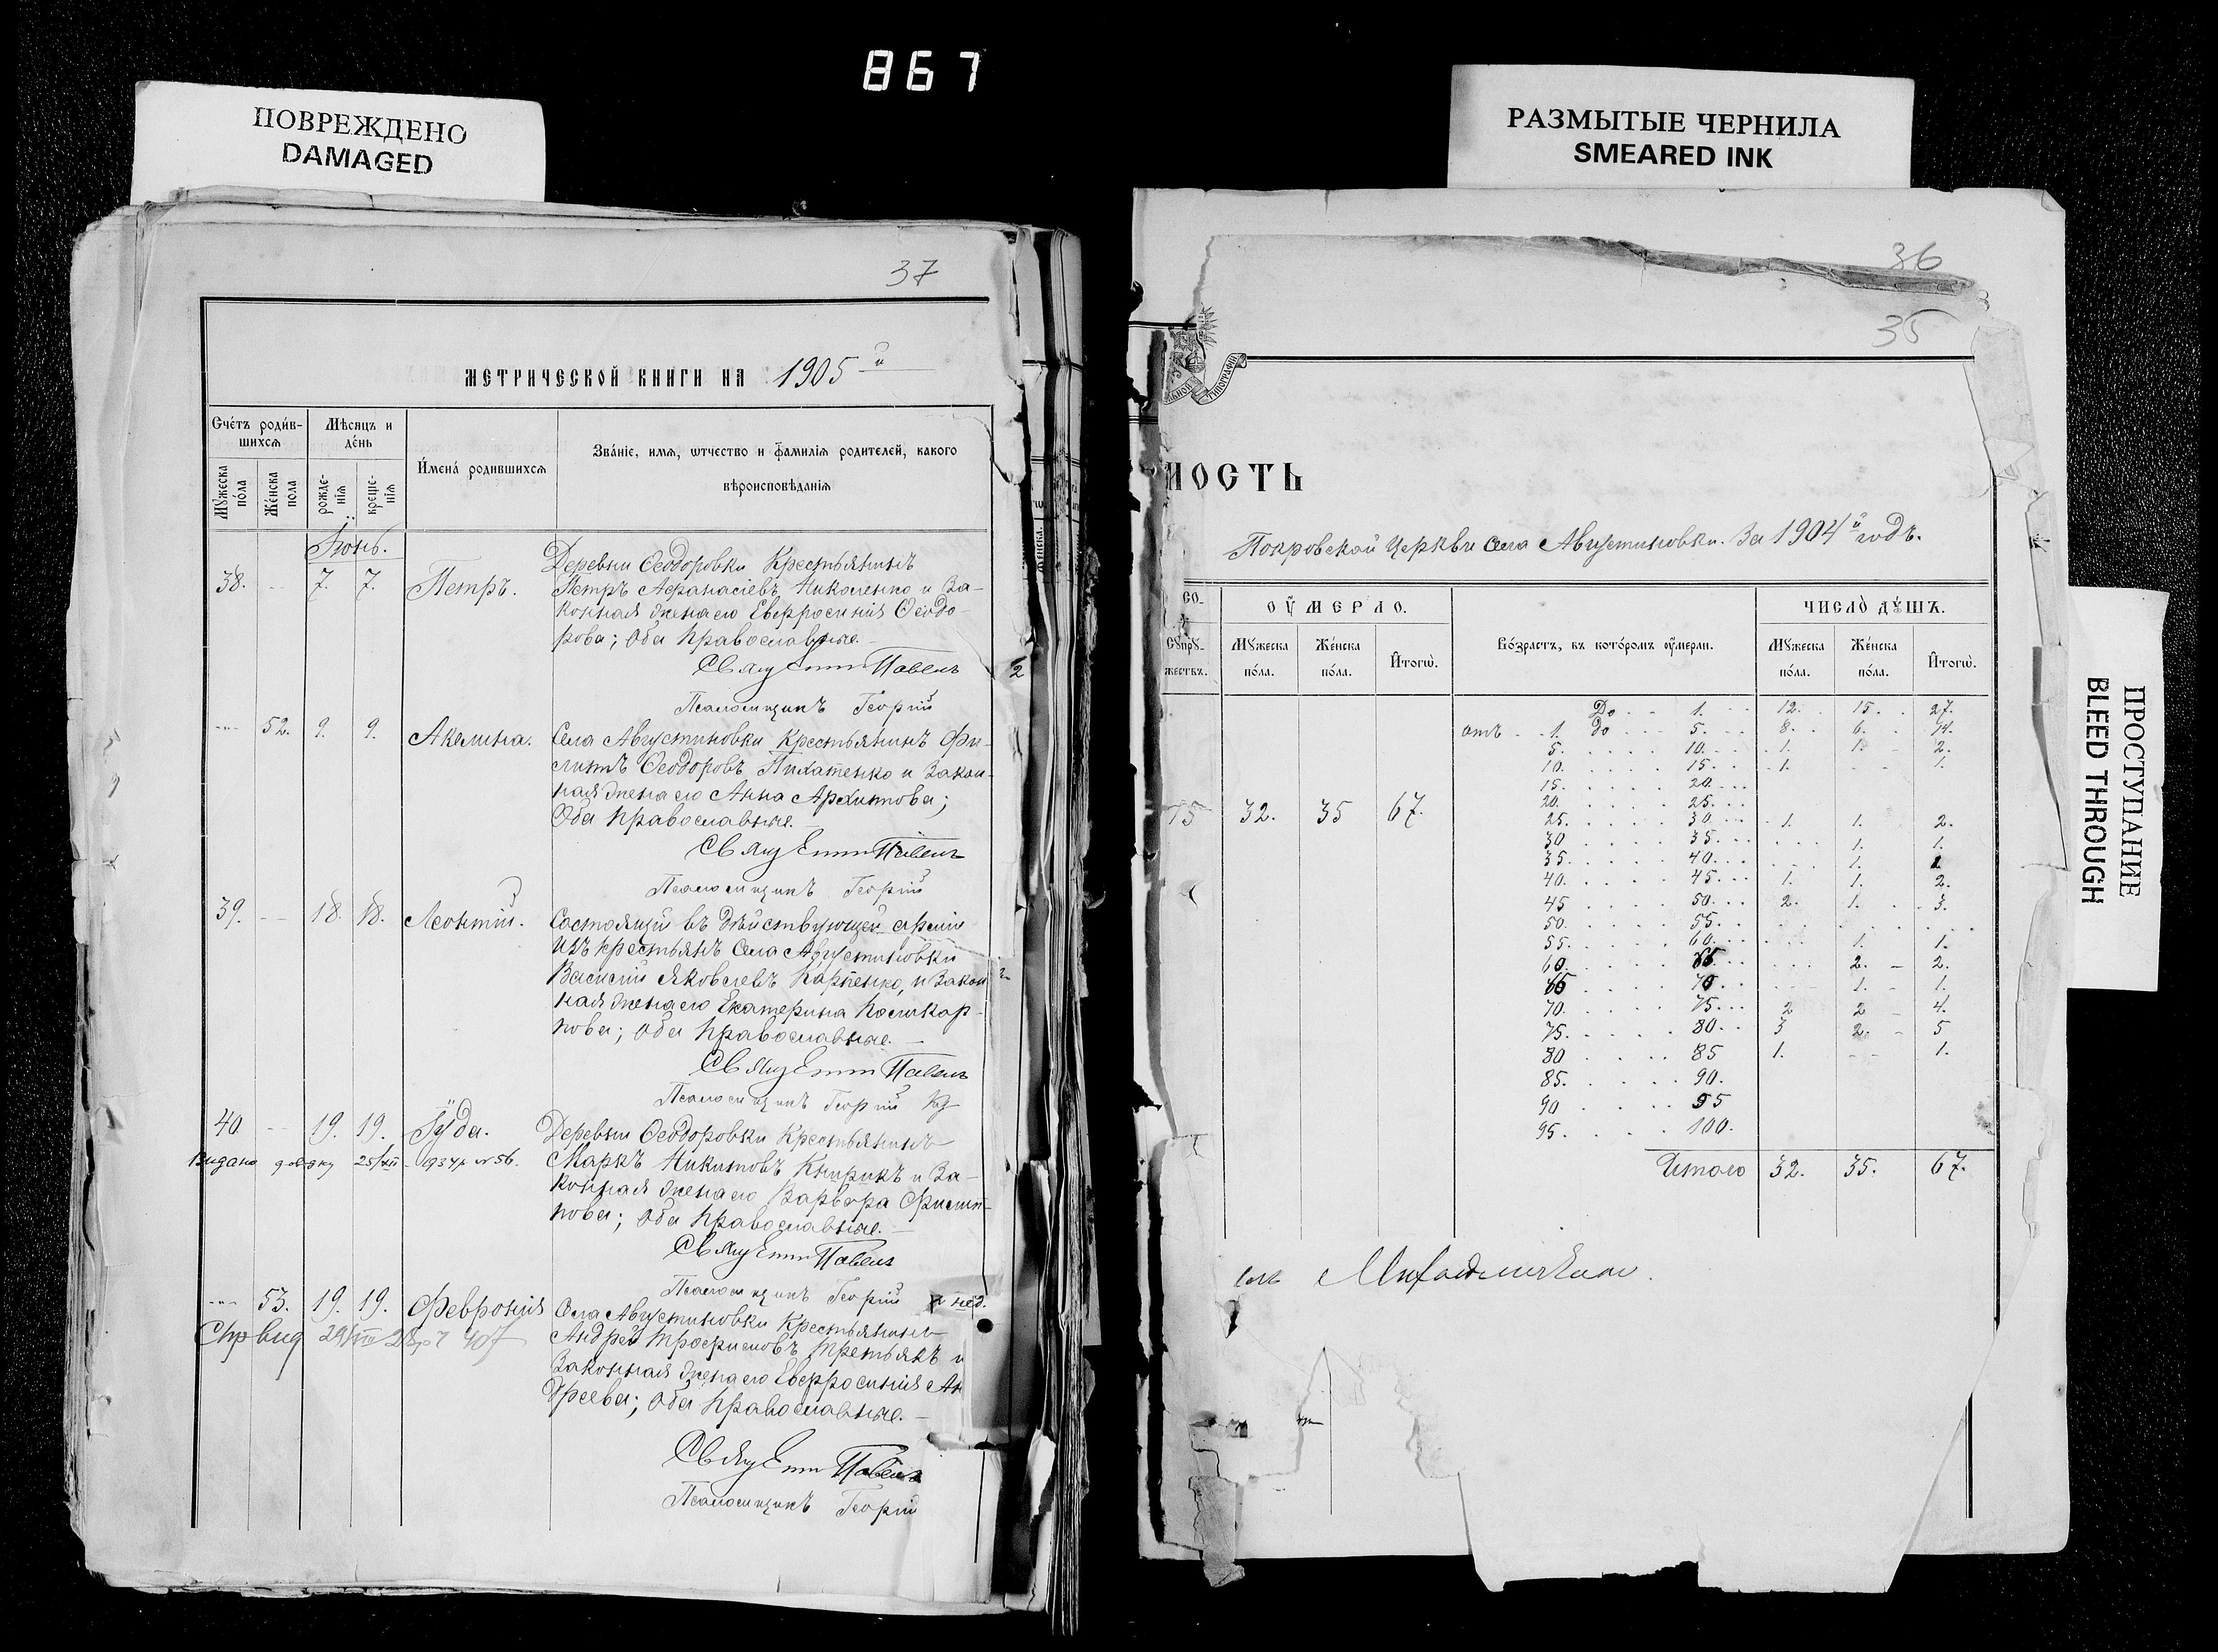 867
ПОВРЕЖДЕНО
DAMAGED
37
МЕТРИЧЕСКОЙ КНИГИ НА 1905й
Счетъ родив-
шихся
Мѣсяцъ и
день
Мужеска
пола
Женска
пола
рожде-
нія
креще-
нія
Имена родившихся
Званіе, имя, отчество и фамилія родителей, какого
вѣроисповѣданія
Іюнь.
38. 7. 7. Петръ.
Деревни Ѳеодоровки Крестьянинъ
Петръ Афанасіевъ Николенко и За-
конная жена его Евфросинія Ѳеодо-
рова; Оба православные.
Священ Павелъ
Псаломщикъ Георгій
52. 9. 9. Акелина.
Села Августиновки Крестьянинъ Фи-
липпъ Ѳеодоровъ Пихатенко и Закон-
ная жена его Анна Архипова;
Оба православные.
Священ Павелъ
Псаломщикъ Георгій
39. 18. 18. Леонтій.
Состоящій въ дѣйствующей арміи
изъ крестьянъ Села Августиновки
Василій Яковлевъ Карпенко, и Закон
ная жена его Екатерина Поликар-
пова; Оба православные.
Священ Павелъ
Псаломщикъ Георгій
40 19. 19. Іуда.
Видано довдку 25/XII-1934р №56.
Деревни Ѳеодоровки Крестьянинъ
Маркъ Никитовъ Кнырикъ и За-
конная жена его Варвара Филип-
пова; Оба православные.
Священ Павелъ
Псаломщикъ Георгій
53. 19. 19. Февронія
Села Августиновки Крестьянинъ
Андрей Трофимовъ Третьякъ и
Законная жена его Евфросинія Ан
дреева; Оба православные.
Священ Павелъ
Псаломщикъ Георгій
РАЗМЫТЫЕ ЧЕРНИЛА
SMEARED INK
36
35
ТИПОГРАФІИ
МОСТЬ
Покровской Церкви села Августиновки. За 1904й годъ.
СО-
Супру-
жествъ.
ОУМЕРЛО.
Мужеска
пола.
Женска
пола.
Итого.
Возрастъ, въ которомъ оумерли.
ЧИСЛО ДУШЪ.
Мужеска
пола.
Женска
пола.
Итого.
До 1. 12. 15. 27.
отъ 1. до 5. 8. 6. 14.
5. 10. 1. 1. 2.
10. 15. 1. 1.
15. 20.
20. 25.
15 32. 35 67.
25. 30. 1. 1. 2.
30 35. 1. 1.
35. 40. 1. 1
40. 45. 1. 1. 2.
45 50. 2. 1. 3.
50. 55.
55. 60. 1. 1.
60. 65 2. 2.
65 70 1. 1.
70. 75. 2 2 4.
75. 80. 3 2. 5
80 85 1. 1.
85. 90.
90 95
95. 100.
Итого 32. 35. 67.
ПРОСТУПАНИЕ
BLEED THROUGH